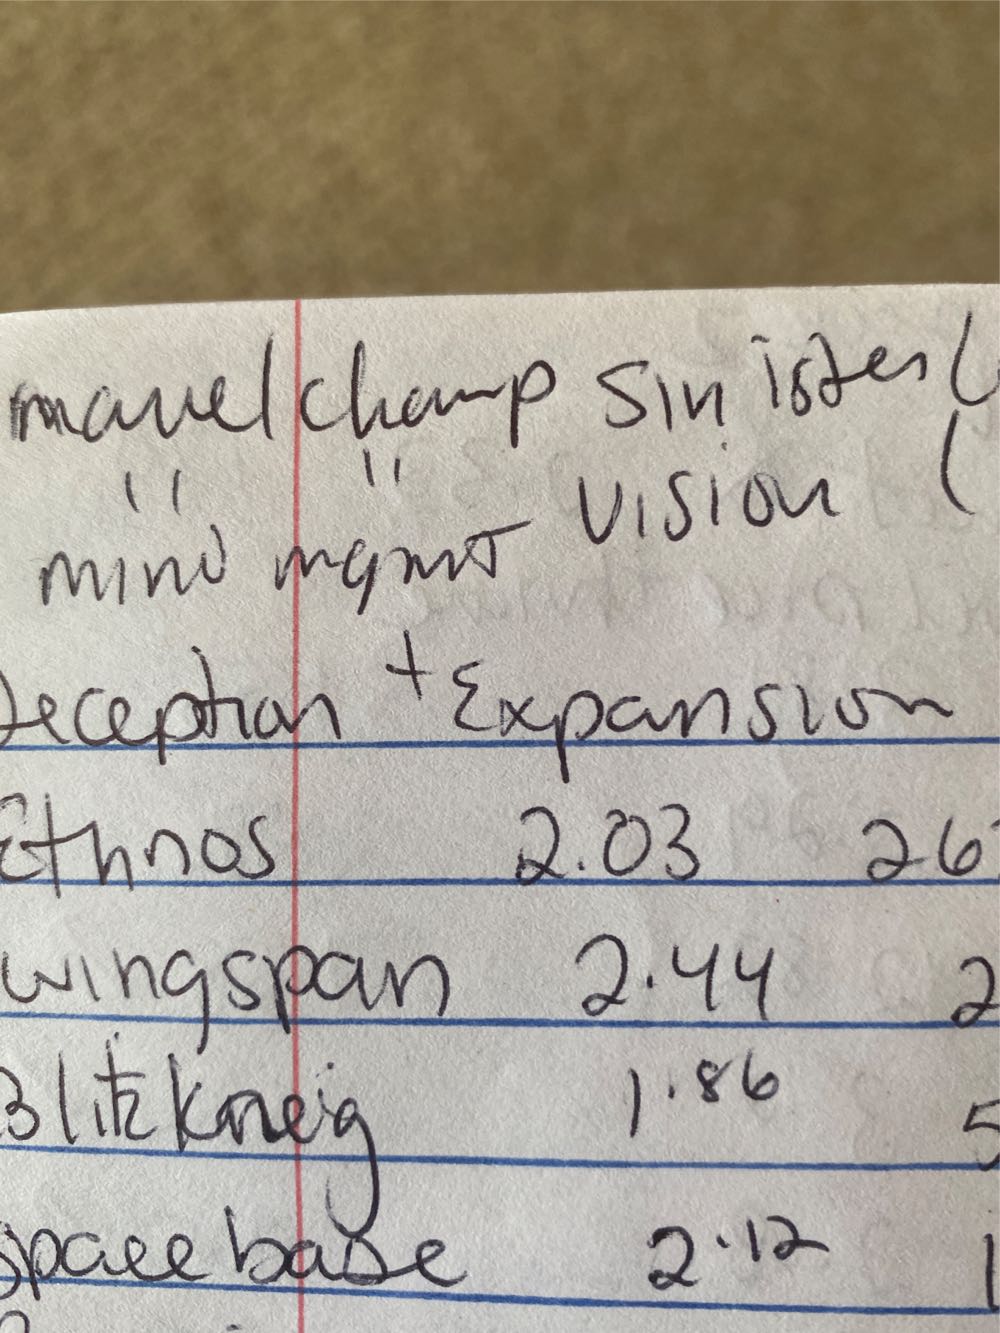 marvel champ Sinister (
" " Vision (
mind mgmt
Deception + Expansion
Ethnos 2.03 26
Wingspan 2.44 2
Blitzkrieg 1.86 5
Space base 2.12 1